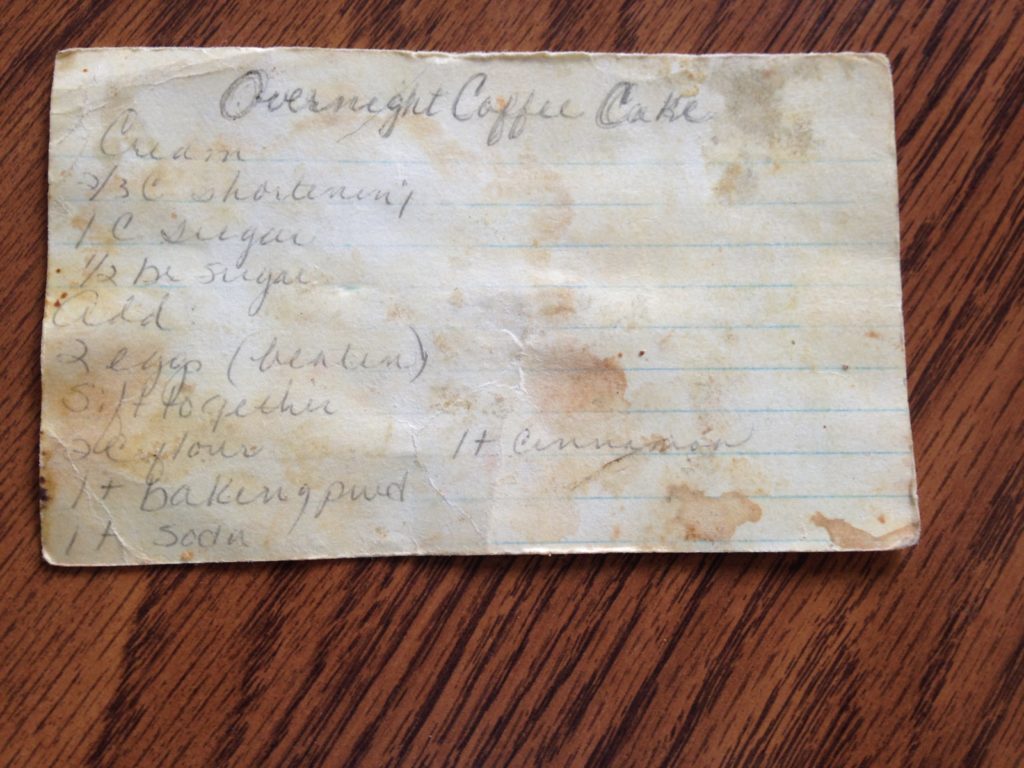 Overnight Coffee Cake
Cream
2/3 C shortening
1 C sugar
1/2 br sugar
Add
2 eggs (beaten)
Sift together
2 C flour 1 t cinnamon
1 t baking pwd
1 t soda